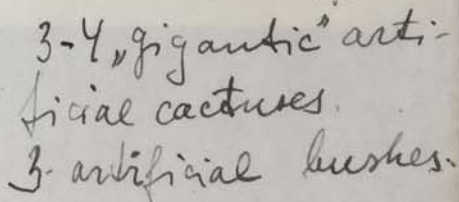 3-4 „gigantic” arti-
ficial cactuses.
3 artificial bushes.